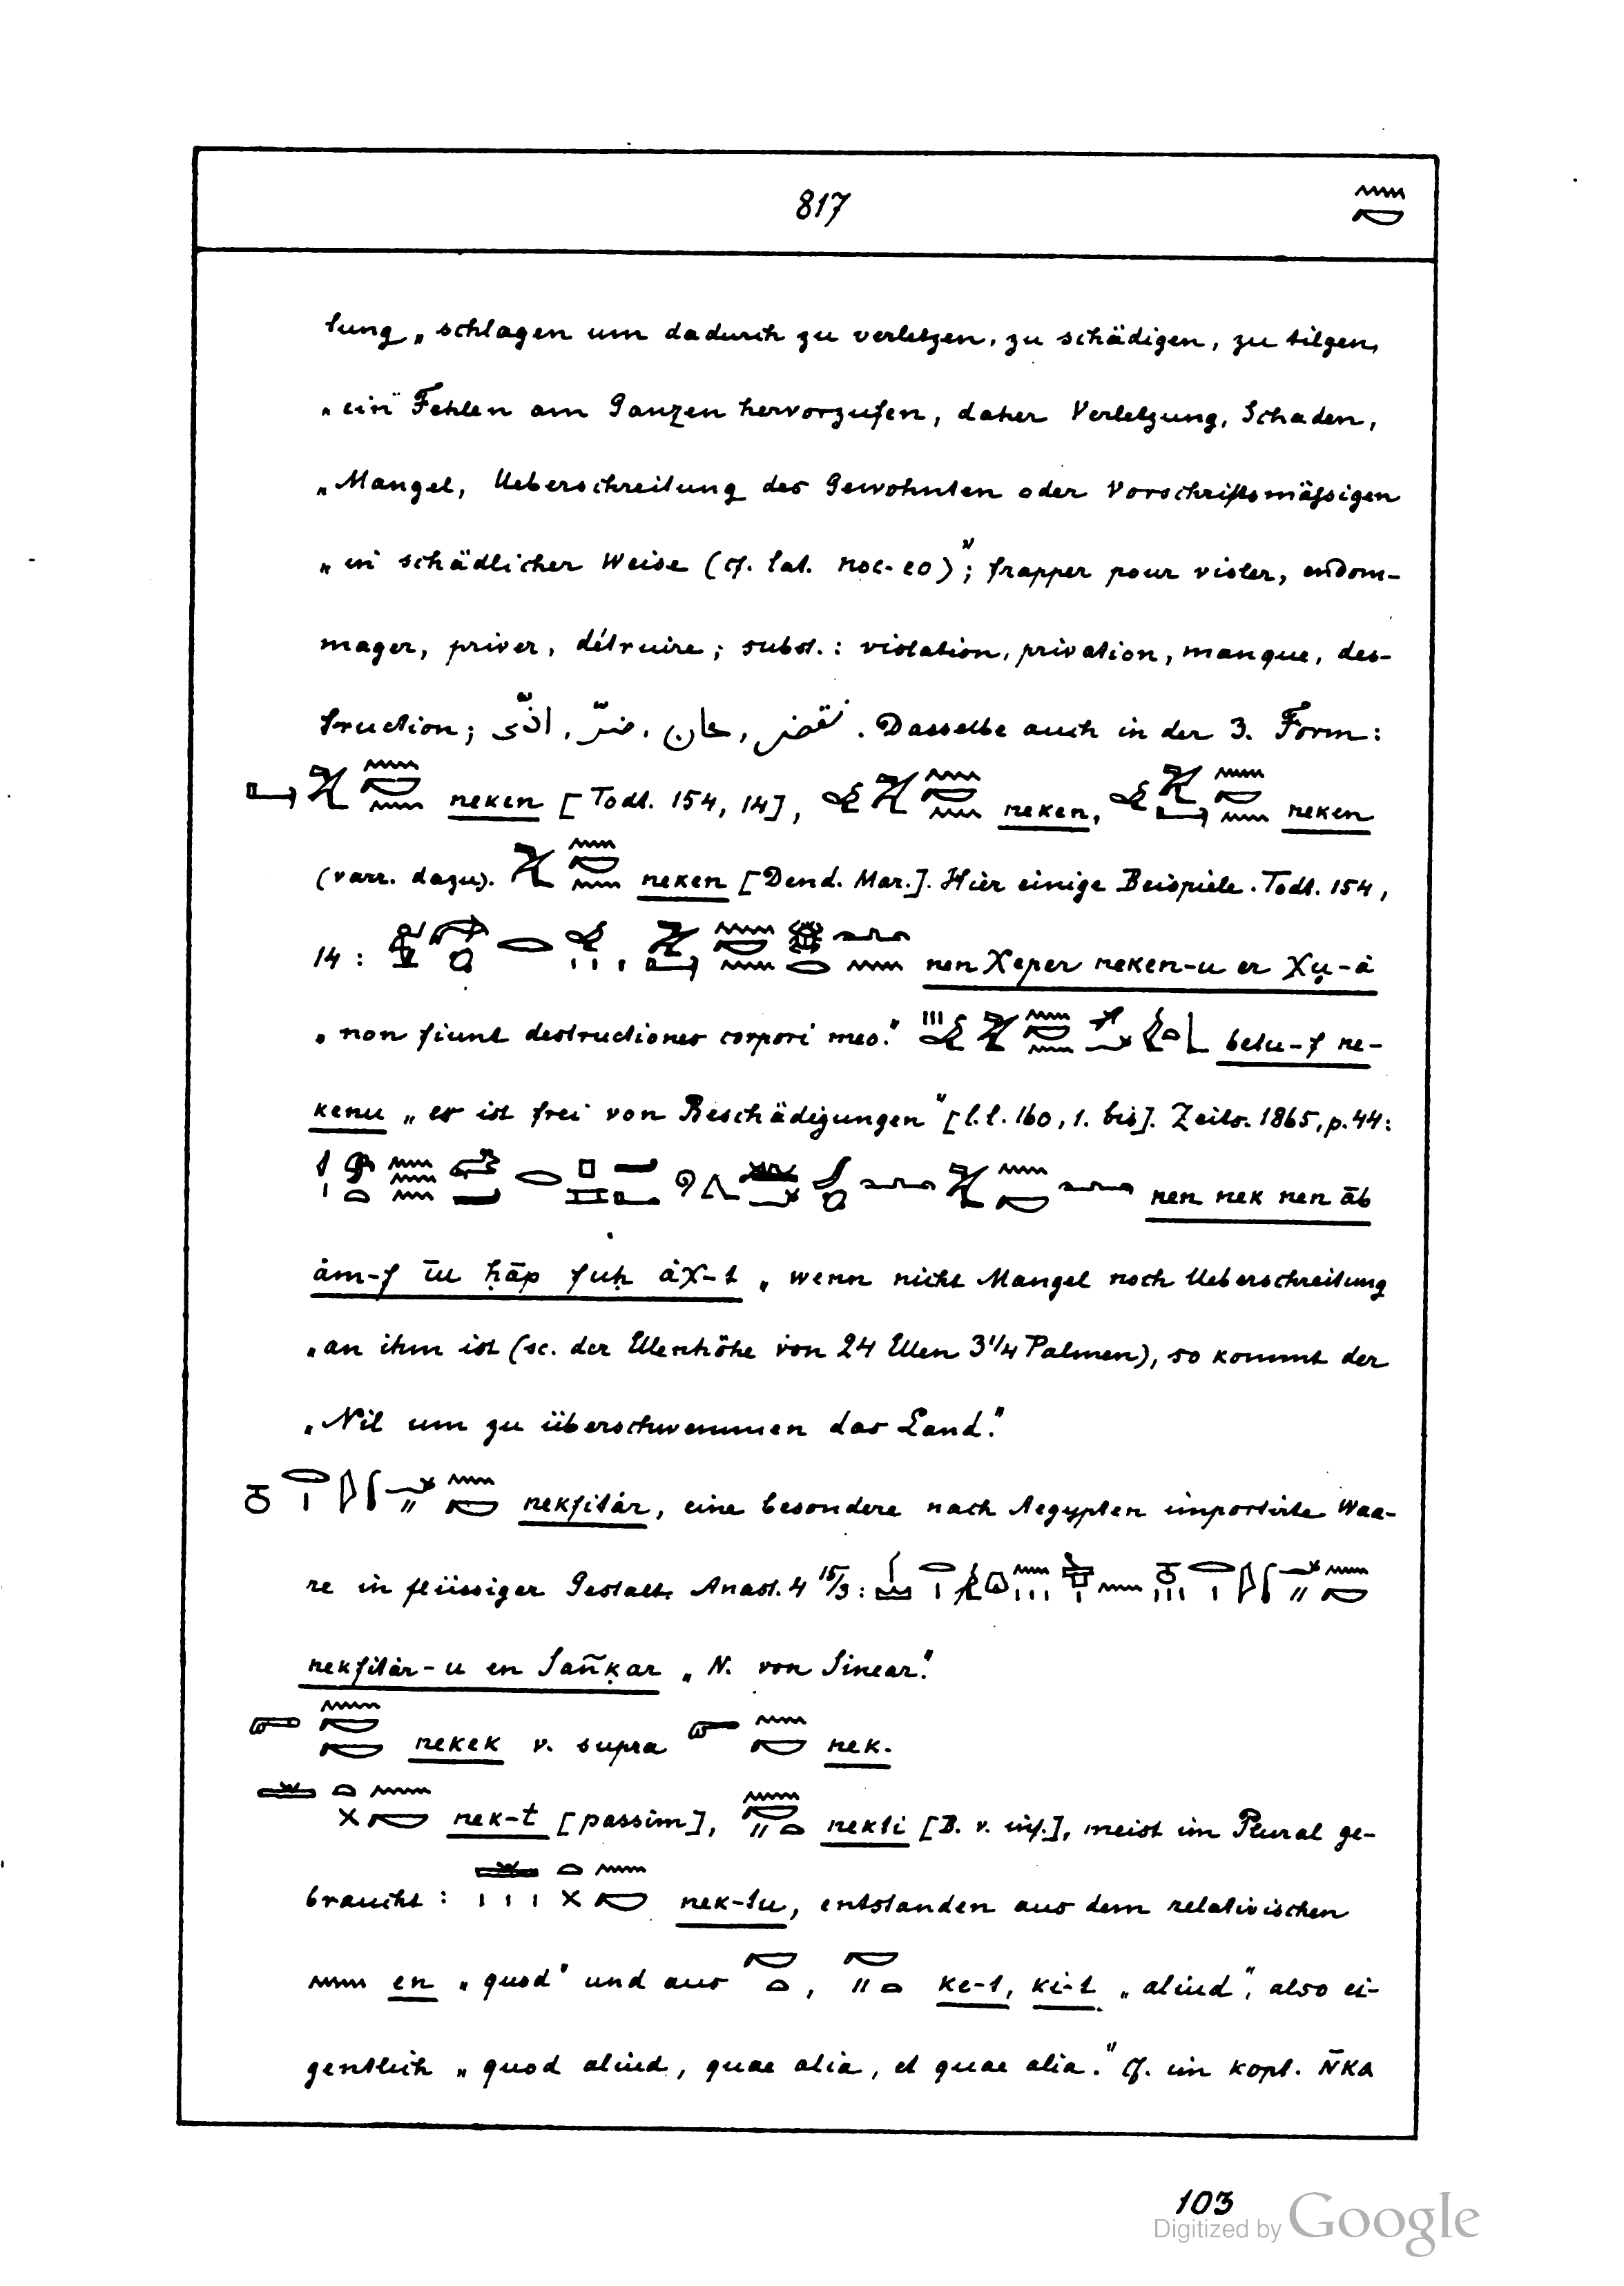 817
lung „schlagen um dadurch zu verletzen, zu schädigen, zu tilgen,
„ein Fehlen am Ganzen hervorzufen, daher Verletzung, Schaden,
„Mangel, Ueberschreitung des Gewohnten oder Vorschriftsmäſsigen
„in schädlicher Weise (cf. lat. noc-eo)"; frapper pour violer, endom-
mager, priver, détruire; subst.: violation, privation, manque, des-
truction; نقض, خان, ضرّ, اذّى. Dasselbe auch in der 3. Form:
neken [Todt. 154, 14], neken, neken
(varr. dazu). neken [Dend. Mar.]. Hier einige Beispiele. Todt. 154,
14: nen χeper neken-u er χu-à
„non fiunt destructiones corpori meo." betu-f ne-
kenu „er ist frei von Beschädigungen" [l.l. 160, 1. bis]. Zeits. 1865, p. 44:
nen nek nen āb
àm-f īu ḥāp fuḥ àχ-t „wenn nicht Mangel noch Ueberschreitung
„an ihm ist (sc. der Ellenhöhe von 24 Ellen 3 1/4 Palmen), so kommt der
„Nil um zu überschwemmen das Land."
nekfitàr, eine besondere nach Aegypten importirte Waa-
re in flüssiger Gestalt. Anast. 4 15/3:
nekfitàr-u en Sañḳar „N. von Sinear."
nekek v. supra nek.
nek-t [passim], nekti [B. v. inf.], meist im Plural ge-
braucht: nek-tu, entstanden aus dem relativischen
en „quod" und aus , ke-t, ki-t „aliud", also ei-
gentlich „quod aliud, quae alia, et quae alia." Cf. im kopt. ⲛ̄ⲕⲁ
103
Digitized by Google